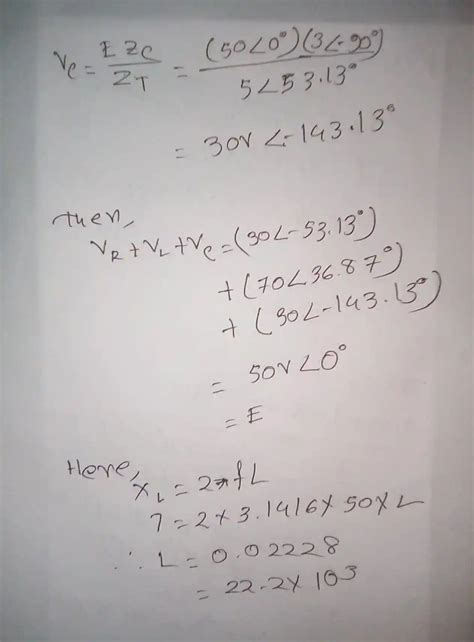 Vc = E Zc / ZT = (50∠0°)(3∠-90°) / 5∠53.13°
= 30V ∠-143.13°
then,
VR + VL + Vc = (30∠-53.13°)
+ (70∠36.87°)
+ (30∠-143.13°)
= 50V ∠0°
= E
Here,
XL = 2πfL
7 = 2 × 3.1416 × 50 × L
∴ L = 0.02228
= 22.2 × 10³